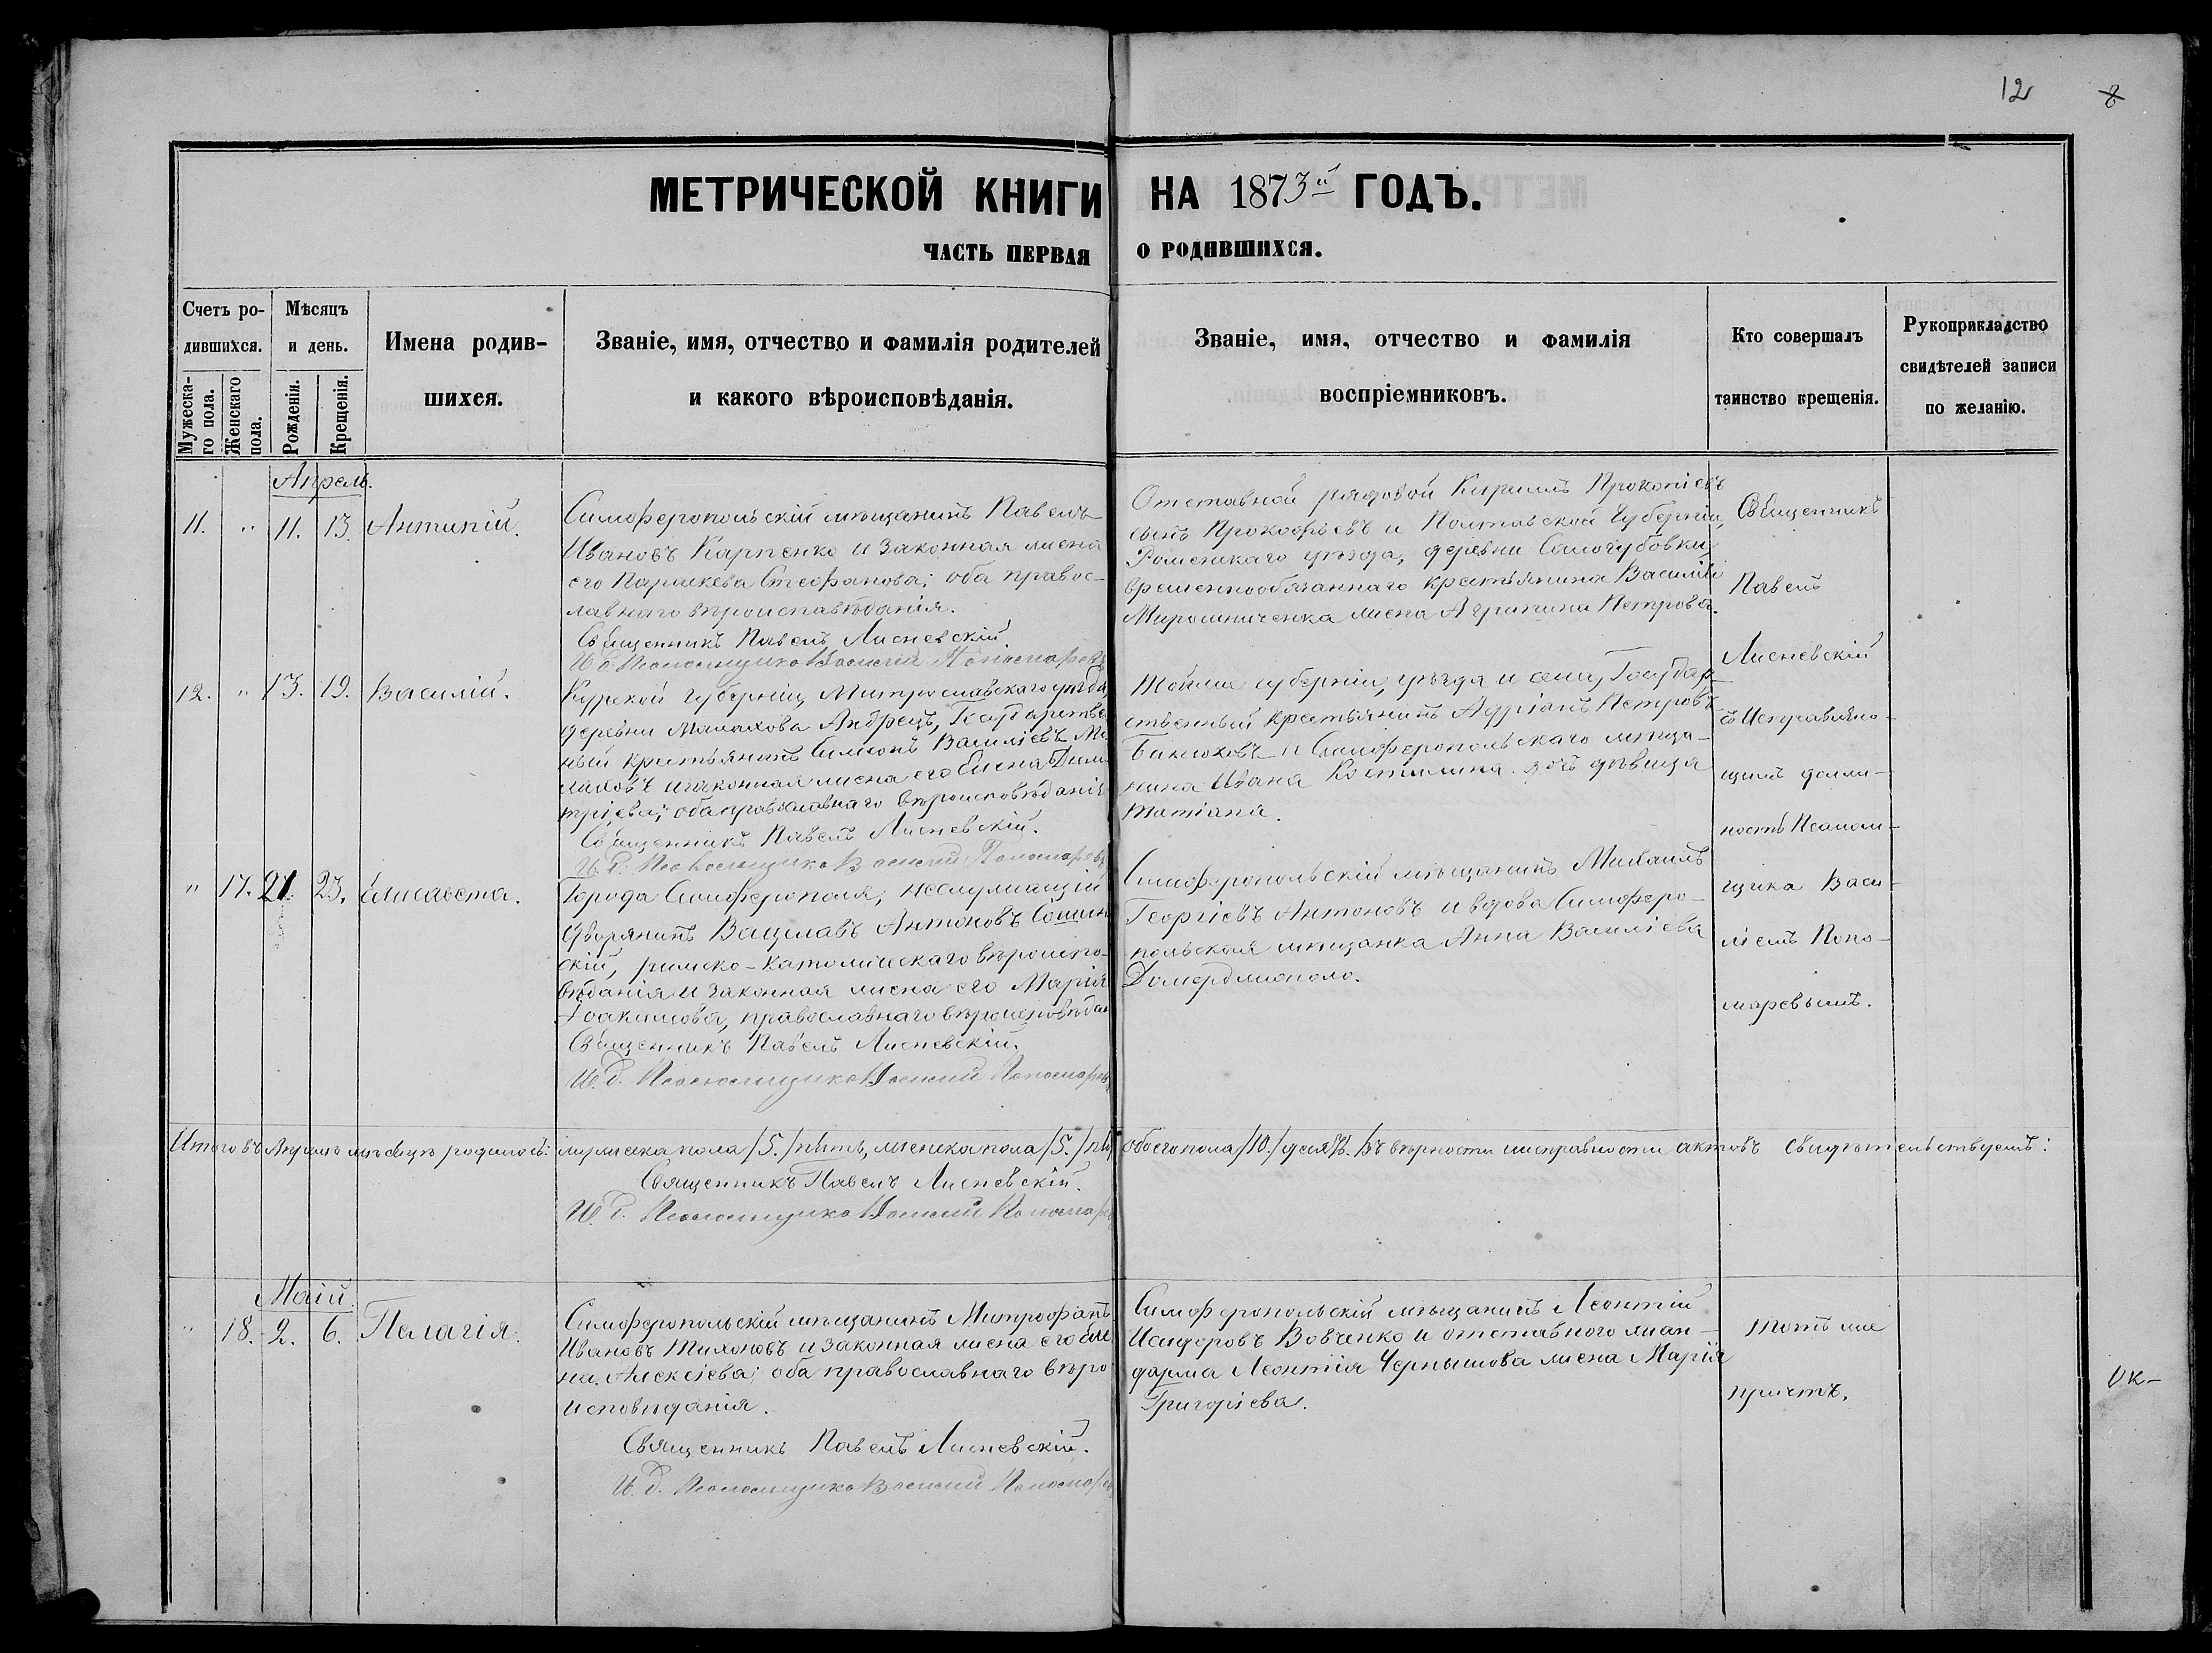 12 8
МЕТРИЧЕСКОЙ КНИГИ НА 1873й ГОДЪ.
ЧАСТЬ ПЕРВАЯ О РОДИВШИХСЯ.
Счетъ ро-
дившихся.
Мужеска-
го пола.
Женскаго
пола.
Мѣсяцъ
и день.
Рожденія.
Крещенія.
Имена родив-
шихся.
Званіе, имя, отчество и фамилія родителей
и какого вѣроисповѣданія.
Званіе, имя, отчество и фамилія
воспріемниковъ.
Кто совершалъ
таинство крещенія.
Рукоприкладство
свидѣтелей записи
по желанію.
Апрель.
11. " 11. 13. Антипій.
Симферопольскій мѣщанинъ Павелъ
Ивановъ Карпенко и законная жена
его Параскева Стефанова; оба правос-
лавнаго вѣроисповѣданія.
Священникъ Павелъ Лисневскій
И. д. Псаломщика Василій Пономаревъ
Отставной рядовой Кирилъ Прокопіевъ
сынъ Прокофьевъ и Полтавской Губерніи,
Роменскаго уѣзда, деревни Самогубовки,
временнообязаннаго крестьянина Василія
Мирошниченка жена Агрипина Петрова.
Священникъ
Павелъ
Лисневскій
съ Исправляю-
щимъ долж-
ность Псалом-
щика Васи-
ліемъ Поно-
маревымъ.
12. " 13. 19. Василій.
Курской губерніи, уѣзда,
деревни Малахова Государстве
ный крестьянинъ Симеонъ Василіевъ Ма
лаховъ и законная жена его Елена Дими
тріева; оба православнаго вѣроисповѣданія
Священникъ Павелъ Лисневскій.
И. д. Псаломщика Василій Пономаревъ
Той же губерніи, уѣзда и села, Государ-
ственный крестьянинъ Адріанъ Петровъ
и Симферопольскаго мѣща-
нина Ивана Костылина дочь дѣвица
Татіана.
" 17. 21. 23. Елисавета.
Города Симферополя, неслужащій
дворянинъ Вацлавъ Антоновъ
скій, римско-католическаго вѣроиспо-
вѣданія и законная жена его Марія
Іоакимова, православнаго вѣроисповѣдан
Священникъ Павелъ Лисневскій.
И. д. Псаломщика Василій Пономаревъ
Симферопольскій мѣщанинъ Михаилъ
Георгіевъ Антоновъ и вдова Симферо-
польская мѣщанка Анна Василіева
Итого въ Апрелѣ мѣсяцѣ родилось: мужеска пола /5./ пять, женска пола /5./ пять обоего пола /10./ десять. Въ вѣрности и исправности актовъ свидѣтельствуемъ:
Священникъ Павелъ Лисневскій.
И. д. Псаломщика Василій Пономаревъ
Маій.
" 18. 2. 6. Пелагія.
Симферопольскій мѣщанинъ Митрофанъ
Ивановъ Тихоновъ и законная жена его Еле
на Алексіева; оба православнаго вѣро
исповѣданія.
Священникъ Павелъ Лисневскій.
И. д. Псаломщика Василій Пономаревъ
Симферопольскій мѣщанинъ Леонтій
Исидоровъ Вовченко и отставного жан-
дарма Леонтія Чернышова жена Марія
Григоріева.
Тотъ же
причтъ.